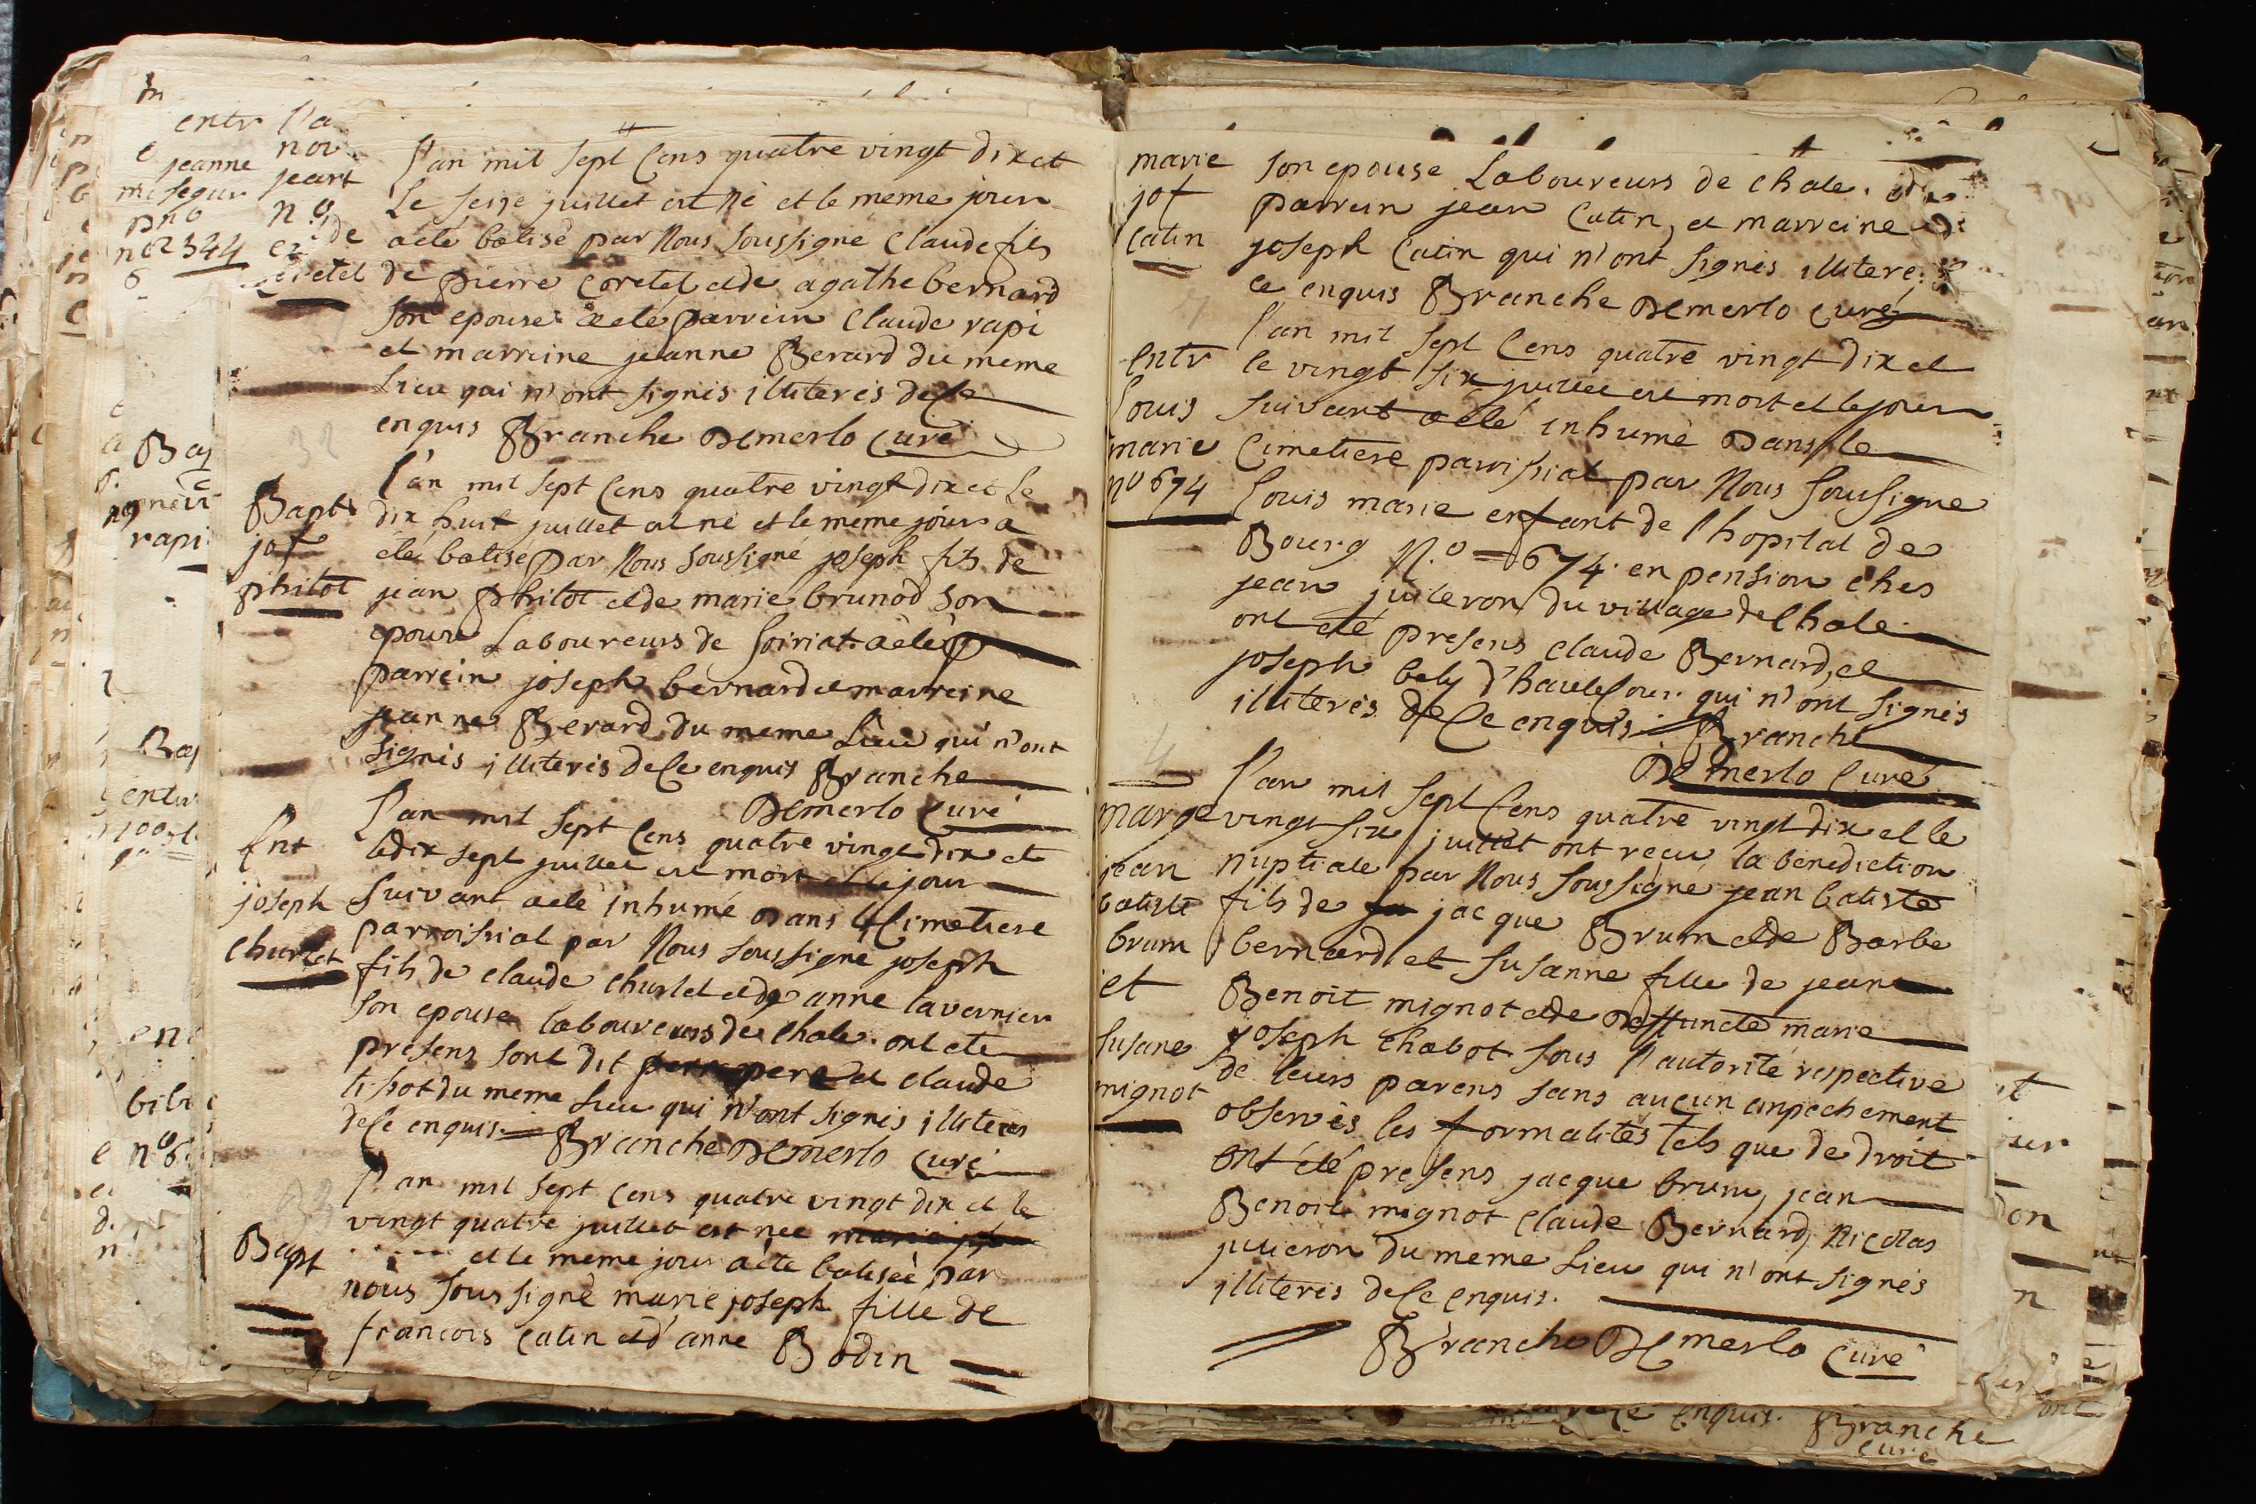 l'an mil sept cens quatre vingt dix et
Le seize juillet est né et le meme jour
de a eté batisé par Nous soussigné Claude fils
coretel de pierre coretel et de agathe bernard
son epouse a eté parrein Claude rapi
et marreine jeanne Berard du meme
Lieu qui n'ont signés illiterés de ce
enquis Branche Demerlo Curé
l'an mil sept cens quatre vingt dix et le
Bapt dix huit juillet est né et le meme jour a
jos eté batisé par Nous soussigné joseph fils de
philot jean philot et de marie brunod son
epouse Laboureurs de soiriat a eté
parrein joseph bernard et marreine
jeanne Berard du meme Lieu qui n'ont
signés illiterés de ce enquis Branche
Demerlo Curé
l'an mil sept cens quatre vingt dix et
Ent le dix sept juillet est mort et le jour
joseph suivant a eté inhumé Dans le Cimetiere
churlet parroissial par Nous soussigné joseph
fils de claude churlet et de anne lavernier
son epouse laboureurs de chale. ont eté
presens sont dit pere et claude
du meme Lieu qui n'ont signés illiterés
de ce enquis. Branche Demerlo Curé
l'an mil sept cens quatre vingt dix et le
vingt quatre juillet est née marie jph
Bapt et le meme jour a eté batisée par
nous soussigné marie joseph fille de
francois catin et d'anne Bodin
marie son epouse Laboureurs de chale.
jos parrein jean catin, et marreine
catin joseph catin qui n'ont signés illiteré
ce enquis Branche Demerlo Curé
l'an mil sept cens quatre vingt dix et
entr le vingt six juillet est mort et le jour
louis suivant a eté inhumé Dans le
marie Cimetiere parrissial par Nous soussigne
no 674 louis marie enfant de l'hopital de
Bourg N.o = 674. en pension ches
jean juileron du village de Chale
ont eté presens claude Bernard, et
joseph bely d'hautecour. qui n'ont signés
illiterés de ce enquis. Branche
Demerlo Curé
l'an mil sept cens quatre vingt dix et le
marge vingt six juillet ont recu la benediction
jean nuptiale par Nous soussigné jean batiste
batiste fils de jacque Brum et de Barbe
brum bernard et susanne fille de jean
et Benoit mignot et de Deffuncte marie
susane joseph Chabot sous l'autorité respective
mignot de leurs parens sans aucun anpechement
observés les formalités tels que de droit
ont eté presens jacque brum, jean
Benoit mignot Claude Bernard, Nicolas
juileron du meme Lieu qui n'ont signés
illiterés de ce enquis.
Branche Demerlo Curé
enquis. Branche
Curé